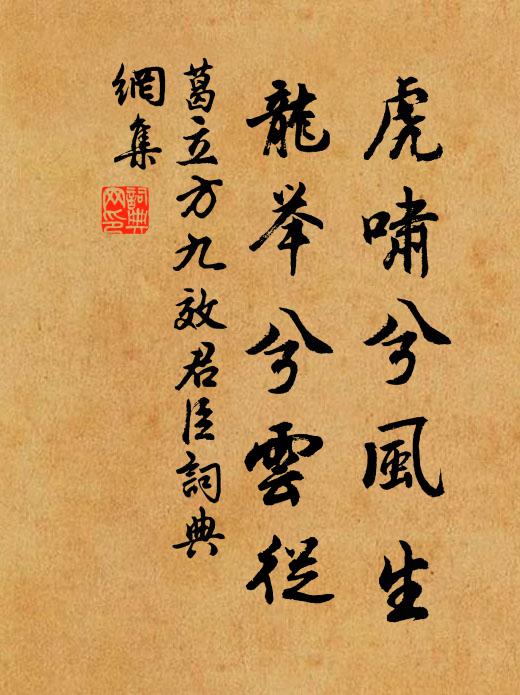 虎嘯兮風生
龍举兮雲從
葛立方九效君臣詞典
網集
詞典
网印